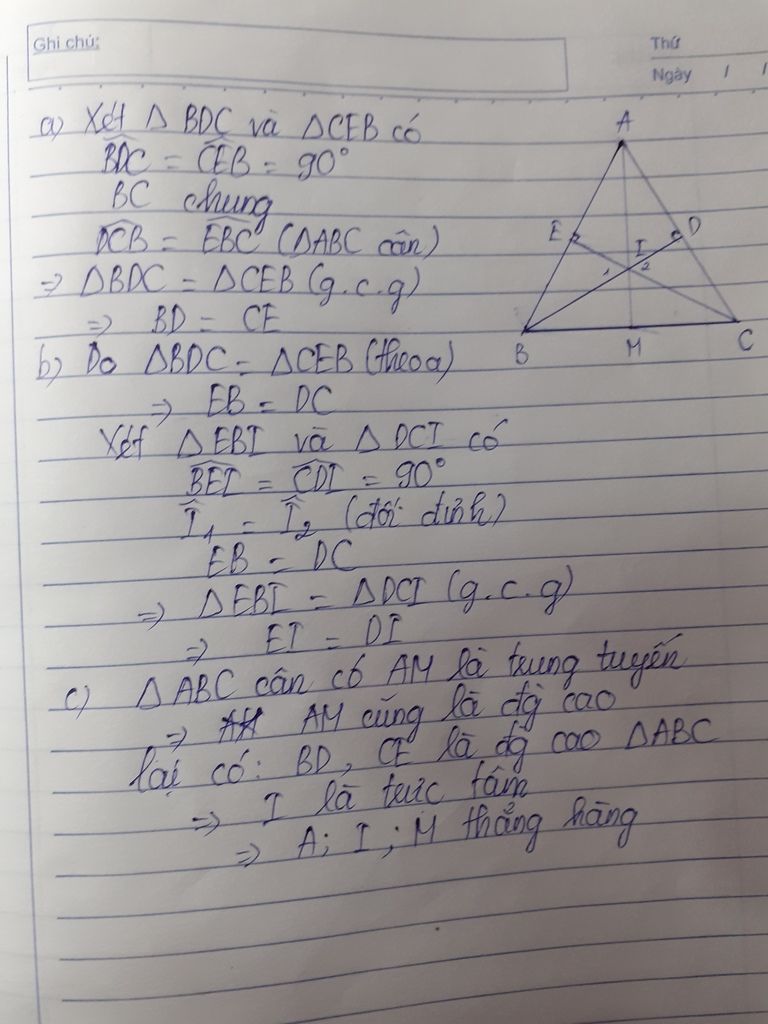 Ghi chú:
Thứ
Ngày / /
a) Xét Δ BDC và ΔCEB có
BDC = CEB = 90°
BC chung
DCB = EBC (ΔABC cân)
=> ΔBDC = ΔCEB (g.c.g)
=> BD = CE
b) Do ΔBDC = ΔCEB (theo a)
=> EB = DC
Xét ΔEBI và Δ DCI có
BEI = CDI = 90°
I₁ = I₂ (đối đỉnh)
EB = DC
=> ΔEBI = ΔDCI (g.c.g)
=> EI = DI
c) ΔABC cân có AM là trung tuyến
=> AM cũng là đg cao
lại có: BD, CE là đg cao ΔABC
=> I là trực tâm
=> A; I; M thẳng hàng
A
E
I
D
1
2
B
M
C